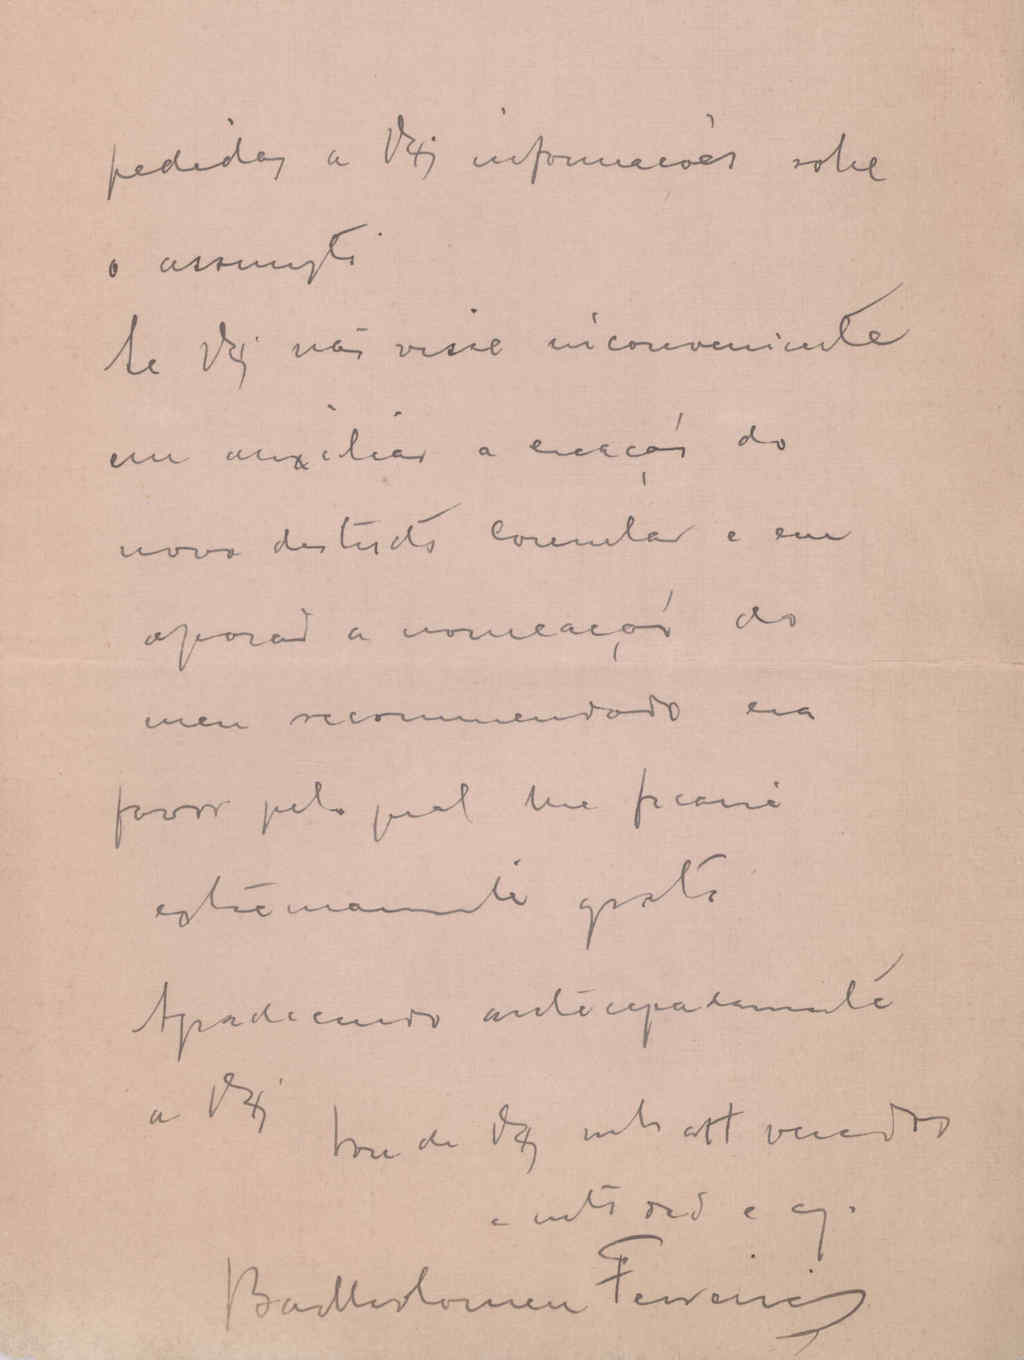 pedidas a VEx informações sobre
o assumpto
Se VEx não visse inconveniente
em auxiliar a creação do
novo districto consular e em
apoiar a nomeação do
meu recommendado era
favor pelo qual lhe ficaria
extremamente grato
Agradecendo antecipadamente
a VEx
Sou de VEx mto att venerador
e mto obd e
Bartholomeu Ferreira